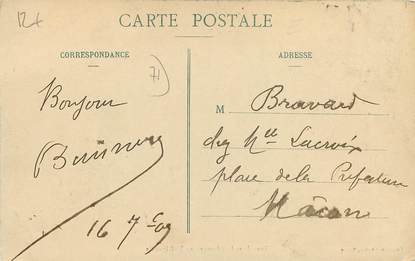 CARTE POSTALE
CORRESPONDANCE
ADRESSE
71
Bonjour
16 7
M Bravard
chez Mlle Lacroix
place de la Préfecture
Mâcon